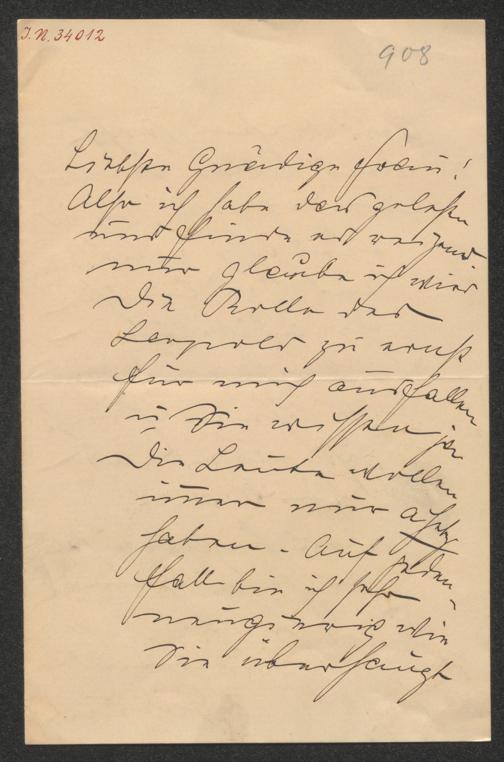 J.N. 34012
908
Liebste Gnädige Frau!
Also ich habe das gelesen
und finde es reizend
nur glaube ich wird
Die Rolle des
Leopold zu ernst
für mich ausfallen
u Sie wissen ja
Die Leute wollen
immer nur a Hetz
haben. Auf jeden-
fall bin ich sehr
neugierig wie
Sie überhaupt